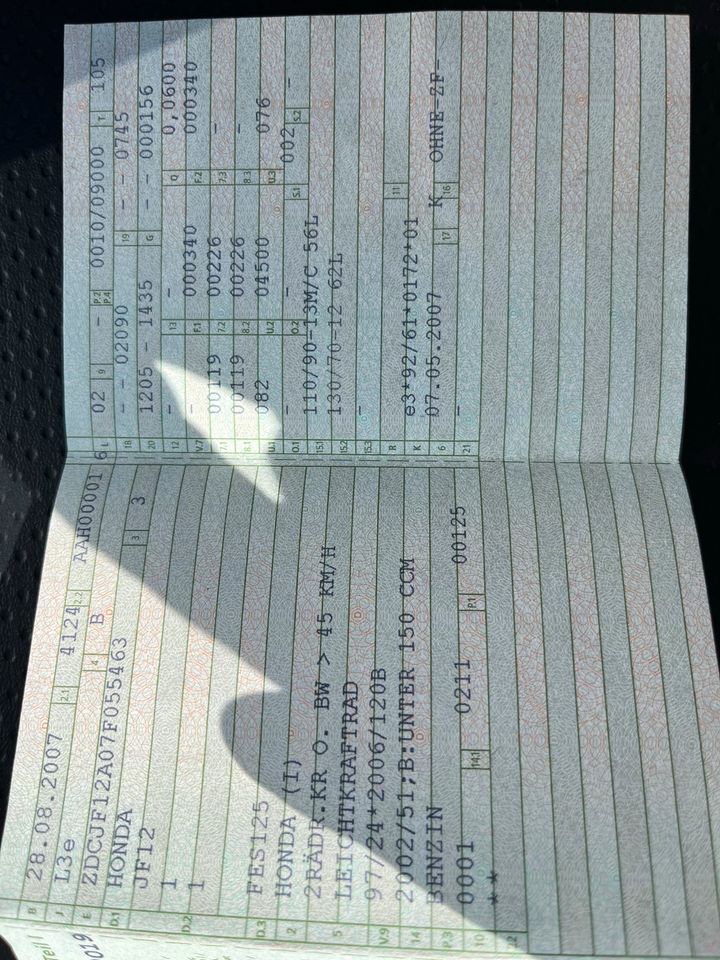 Teil I
019
B 28.08.2007 2.1 4124 2.2 AAH00001 6
J L3e 4 B
E ZDCJF12A07F055463 3 3
D.1 HONDA
JF12
D.2 1
1
D.3 FES125
2 HONDA (I)
5 2RÄDR.KR O. BW > 45 KM/H
LEICHTKRAFTRAD
V.9 97/24*2006/120B
14 2002/51;B:UNTER 150 CCM
P.3 BENZIN
10 0001 14.1 0211 P.1 00125
**
L 02 9 - P.2 P.4 0010/09000 T 105
18 - - 02090 19 - - 0745
20 1205 - 1435 G - - 000156
12 - 13 - Q 0,0600
V.7 - F.1 000340 F.2 000340
7.1 00119 7.2 00226 7.3 -
8.1 00119 8.2 00226 8.3 -
U.1 082 U.2 04500 U.3 076
O.1 - O.2 - S.1 002 S.2 -
15.1 110/90-13M/C 56L
15.2 130/70-12 62L
15.3 -
R 11
K e3*92/61*0172*01
6 07.05.2007 17 K 16 OHNE-ZF-
21 -